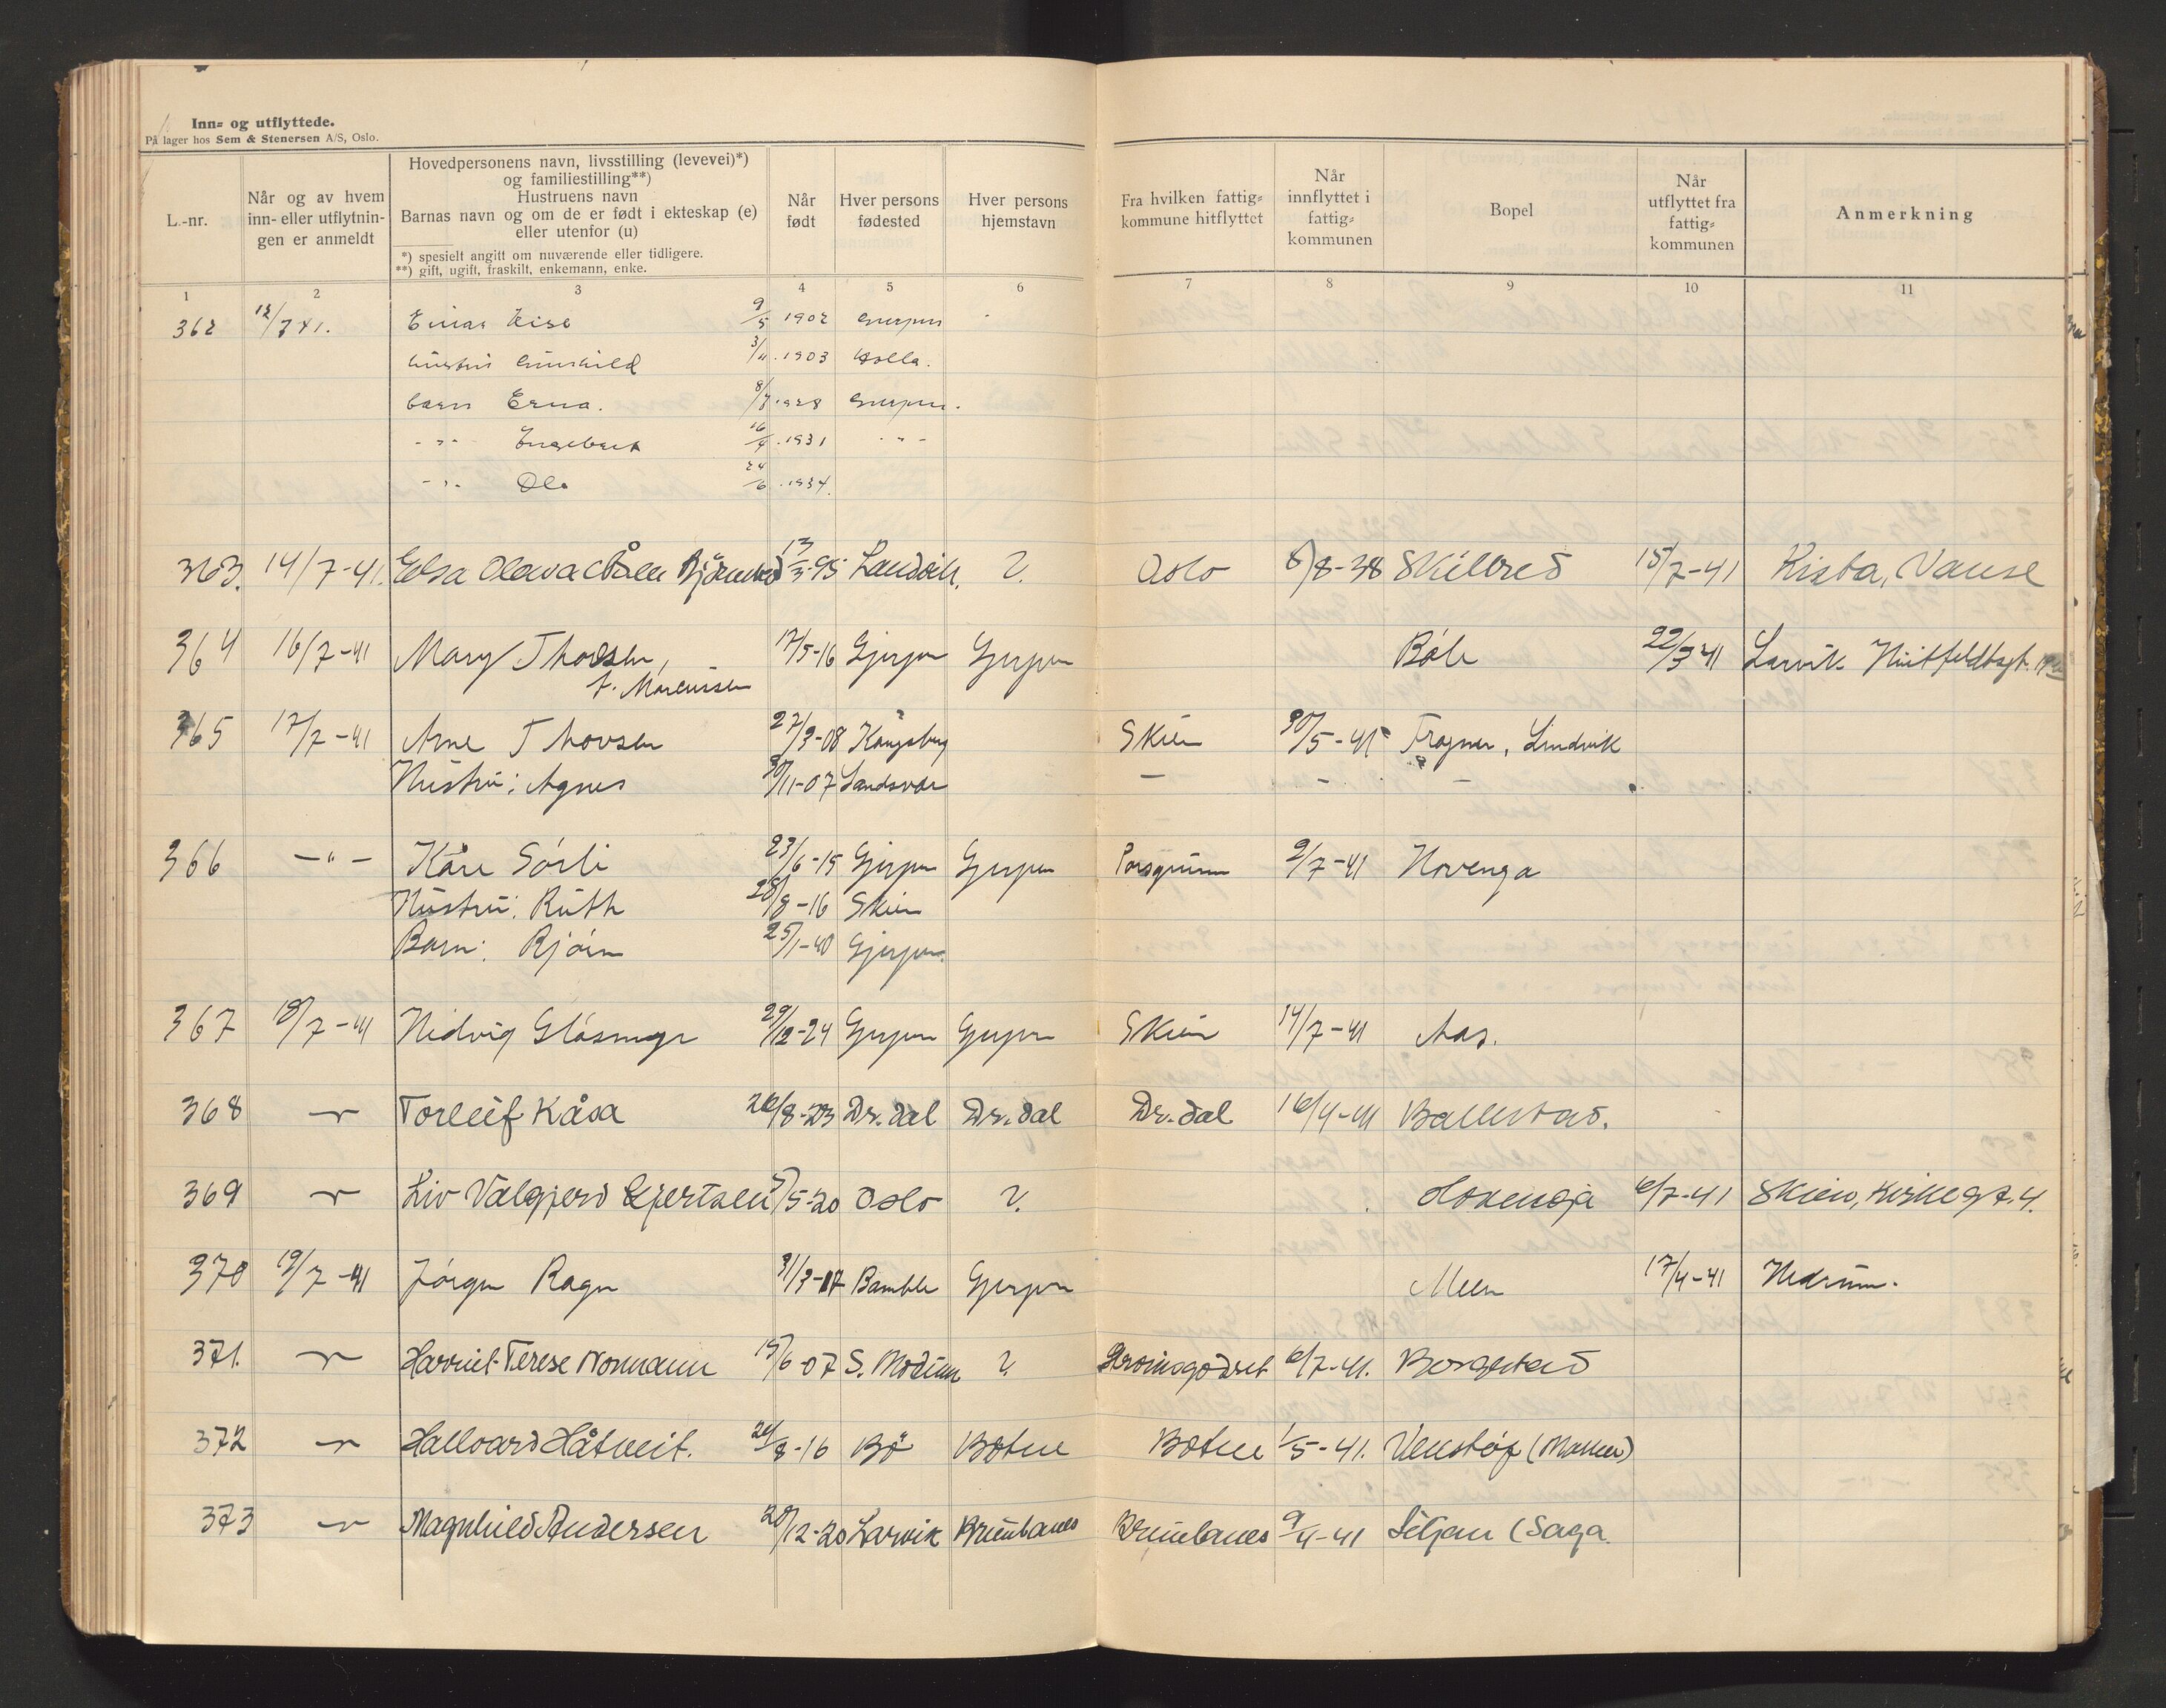 Inn- og utflyttede.
På lager hos Sem & Stenersen A/S, Oslo.
L.-nr.
Når og av hvem inn- eller utflytnin- gen er anmeldt
Hovedpersonens navn, livsstilling (levevei)*)
og familiestilling**)
Hustruens navn
Barnas navn og om de er født i ekteskap (e)
eller utenfor (u)
*) spesielt angitt om nuværende eller tidligere.
**) gift, ugift, fraskilt, enkemann, enke.
Når født
Hver persons fødested
Hver persons hjemstavn
Fra hvilken fattig- kommune hitflyttet
Når innflyttet i fattig- kommunen
Bopel
Når utflyttet fra fattig- kommunen
Anmerkning
1 2 3 4 5 6 7 8 9 10 11
362 12/7 41. Einar 9/5 1902 Gjerpen
hustru Gunhild 3/11 1903 Holla.
barn Erna. 8/7 1928 Gjerpen.
-"- Engebret 16/4 1931 -"-
-"- Ola 24/6 1934.
363. 14/7-41. Elsa Olava 13/3-95 ?. Oslo 6/8-38 Skilbred 15/7-41 Kista, Vanse
364 16/7-41 Mary Thorsen, 17/5-16 Gjerpen Gjerpen Bøle 22/3 41 Larvik Huitfeldtsgt.
f. Marcussen
365 17/7-41 Arne Thovsen 27/3-08 Kongsberg Skien 30/5-41 Frogner, Lundvik
Hustru: Agnes 30/11-07 Sandsvær - - -
366 -"- Kåre Sørli 23/6-15 Gjerpen Gjerpen Porsgrunn 2/7-41 Hovenga
Hustru: Ruth 28/8-16 Skien
Barn: Bjørn 25/1-40 Gjerpen.
367 18/7-41 Hedvig Gløsmyr 29/12-24 Gjerpen Gjerpen Skien 14/7-41 Aas.
368 -"- Torleif Kåsa 26/8-23 Dr.dal Dr.dal Dr.dal 16/4-41 Ballestad.
369 -"- Liv Valgjerd Gjertsen 5/5-20 Oslo ?. Hovenga 6/7-41 Skien, Kirkegt. 4.
370 19/7-41 Jørgen Ragn 31/3-17 Bamble Gjerpen Meen 17/4-41 Hedrum.
371. -"- Harriet Terese Normann 15/6-07 S. Modum ? Strømsgodset 6/7-41. Borgestad
372 -"- Hallvard Håtveit. 24/8-16 Bø Botne Botne 1/5-41. Venstøp
373 -"- Magnhild Andersen 20/12-20 Larvik Brunlanes Brunlanes 9/4-41 Siljan (Saga